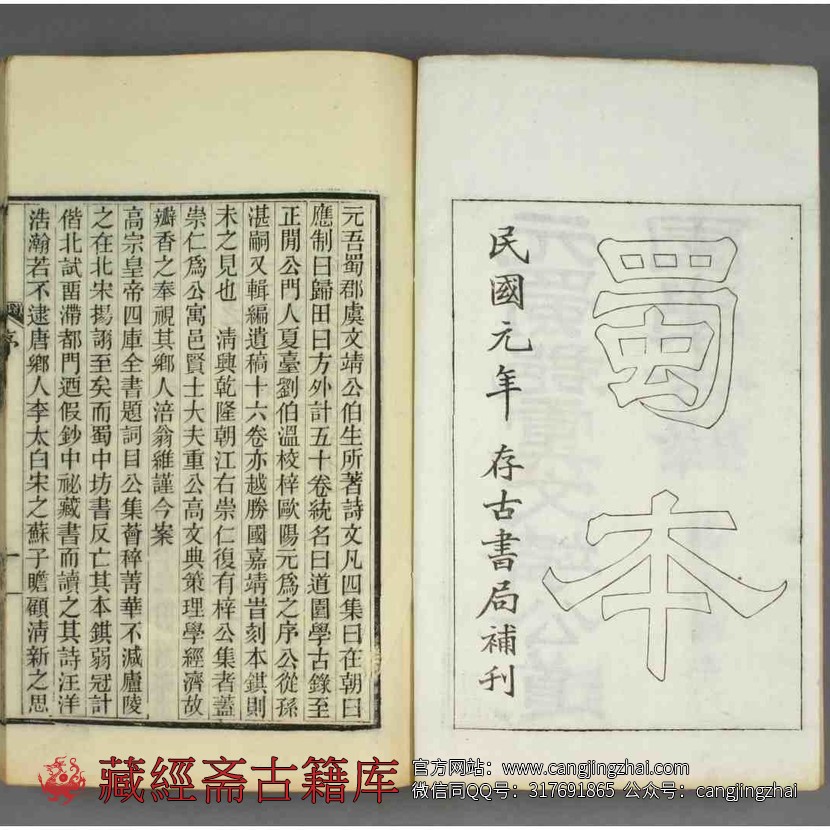 蜀本
民國元年 存古書局補刊
元吾蜀郡虞文靖公伯生所著詩文凡四集曰在朝曰
應制曰歸田曰方外計五十卷統名曰道園學古錄至
正閒公門人夏臺劉伯溫校梓歐陽元為之序公從孫
湛嗣又輯編遺稿十六卷亦越勝國嘉靖昔刻本錤則
未之見也 淸興乾隆朝江右崇仁復有梓公集者蓋
崇仁為公寓邑賢士大夫重公高文典策理學經濟故
瓣香之奉視其鄉人涪翁維謹今案
高宗皇帝四庫全書題詞目公集薈稡菁華不減廬陵
之在北宋揚詡至矣而蜀中坊書反亡其本錤弱冠計
偕北試畱滯都門迺假鈔中祕藏書而讀之其詩汪洋
浩瀚若不逮唐鄉人李太白宋之蘇子瞻顧淸新之思
序
一
藏經斋古籍库
官方网站：www.cangjingzhai.com
微信同QQ号：317691865 公众号：cangjingzhai